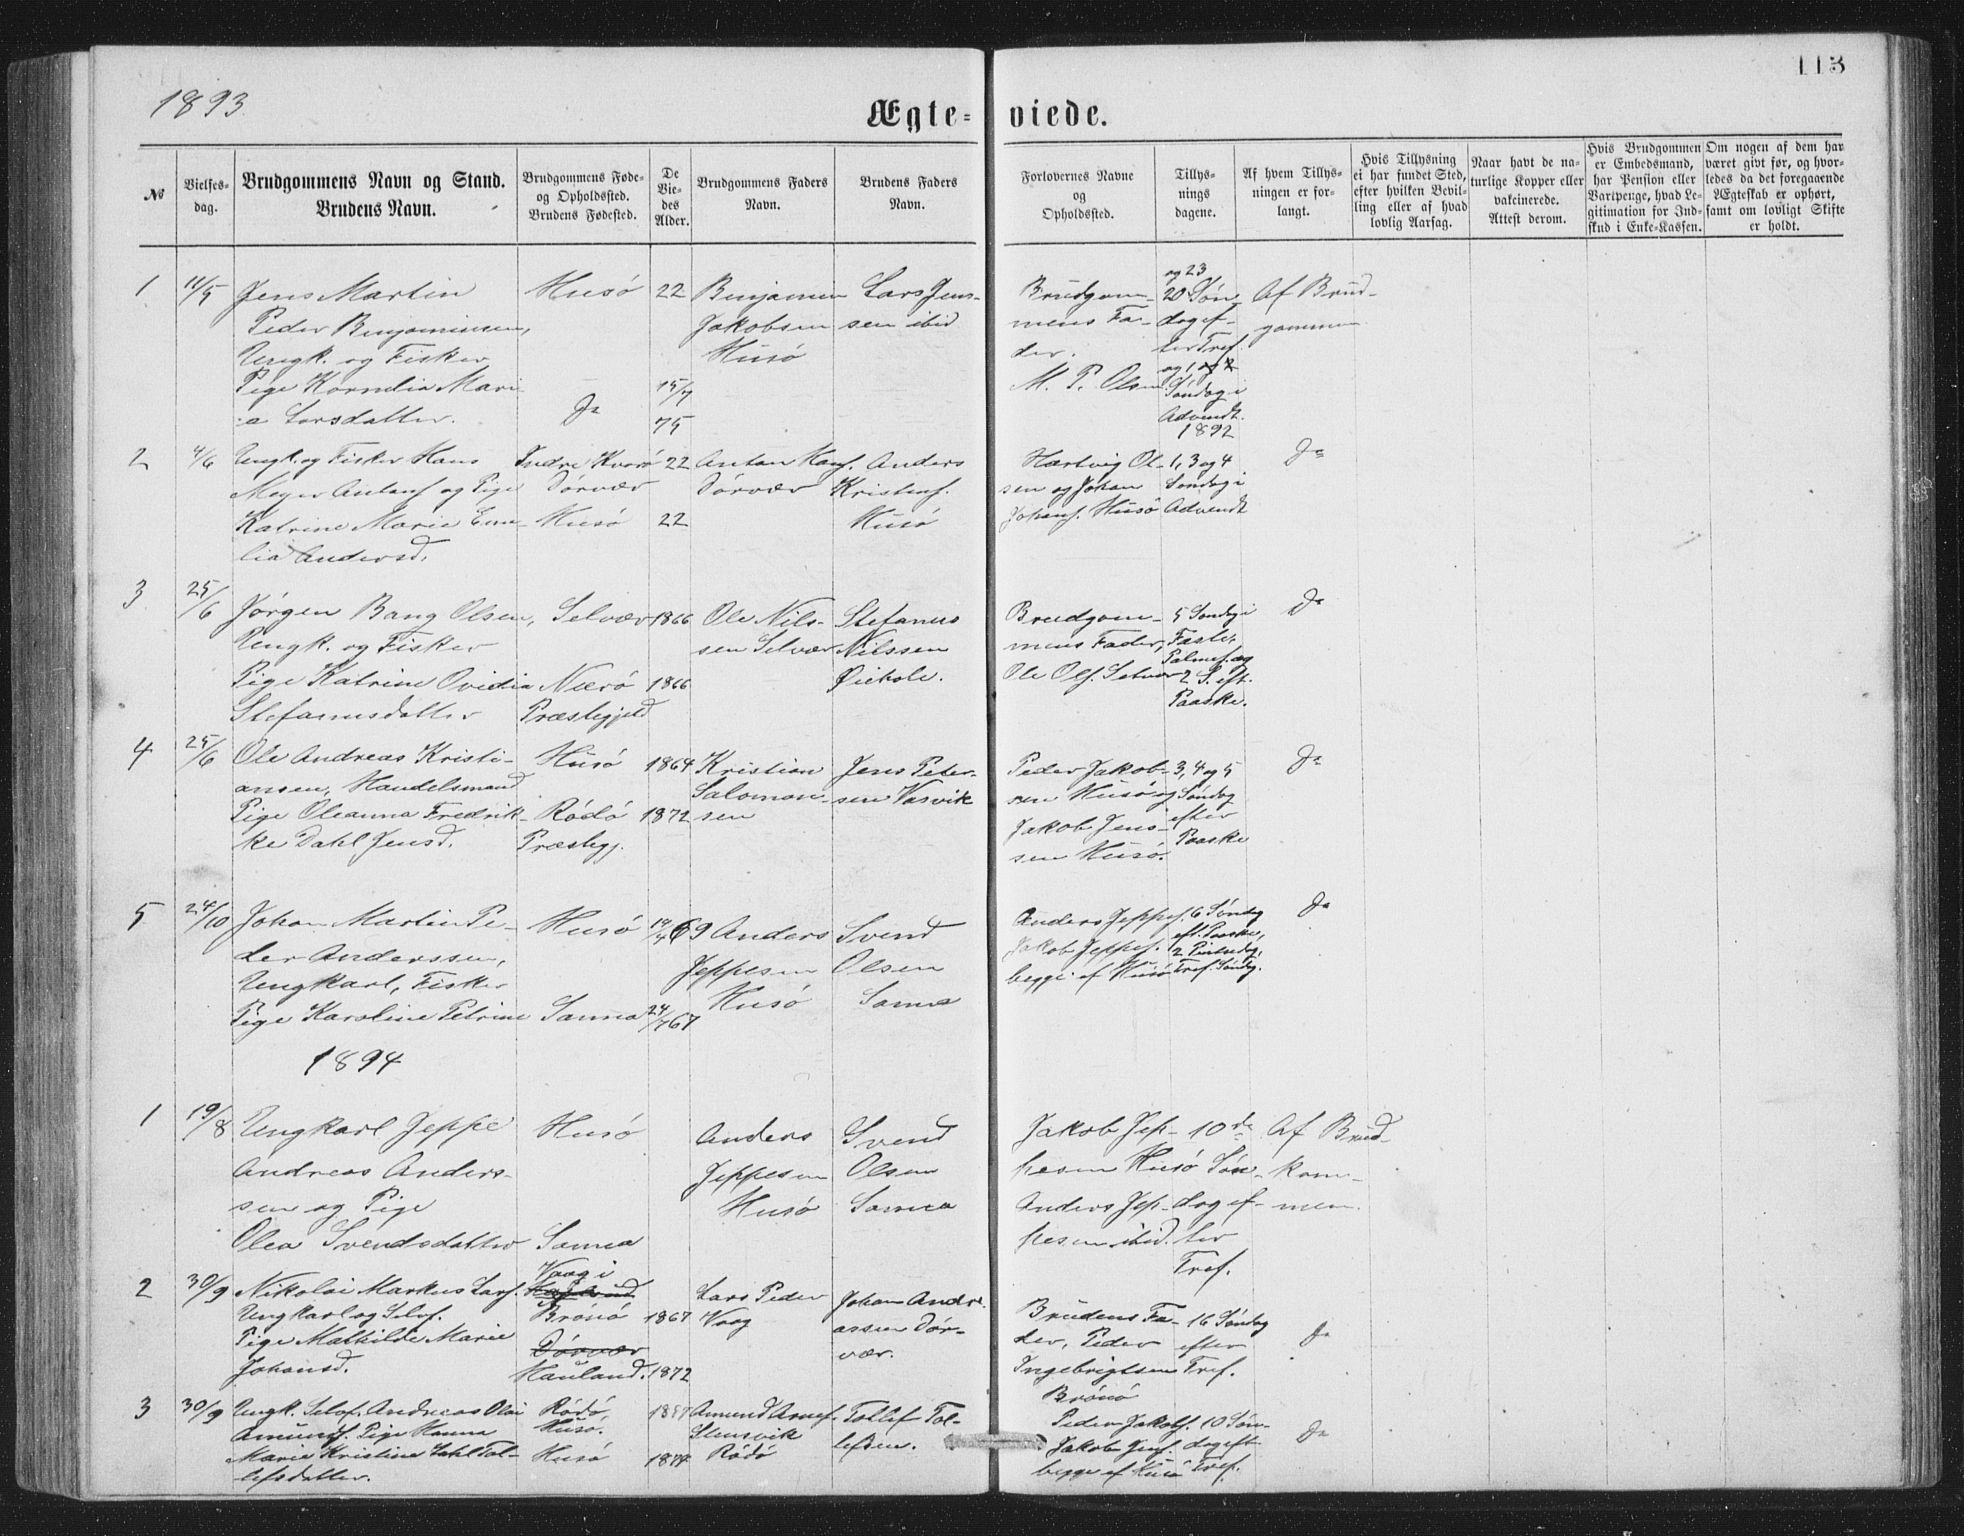 113
1893
Ægte-viede.
No
Vielses-
dag.
Brudgommens Navn og Stand.
Brudens Navn.
Brudgommens Føde-
og Opholdssted.
Brudens Fødested.
De
Vie-
des
Alder.
Brudgommens Faders
Navn.
Brudens Faders
Navn.
Forlovernes Navne
og
Opholdssted.
Tillys-
nings
dagene.
Af hvem Tillys-
ningen er for-
langt.
Hvis Tillysning
ei har fundet Sted,
efter hvilken Bevil-
ling eller af hvad
lovlig Aarsag.
Naar havt de na-
turlige Kopper eller
vakcinerede.
Attest derom.
Hvis Brudgommen
er Embedsmand,
har Pension eller
Vartpenge, hvad Le-
gitimation for Ind-
skud i Enke-Kassen.
Om nogen af dem har
været givt før, og hvor-
ledes da det foregaaende
Ægteskab er ophørt,
samt om lovligt Skifte
er holdt.
1
11/5
Jens Martin
Peder Benjaminsen,
Ungk. og Fisker
Pige Kornelia Mari
a Larsdatter.
Husö
Do
22
15/7
75
Benjamin
Jakobsen
Husö
Lars Jens-
sen ibid
Brudgom-
mens Fa-
der.
M. P. Olsen
og 23
20 Søn-
dag ef-
ter Tref.
og 1,
Søndag i
Advendt.
1892
Af Brud-
gommen
2
4/6
Ungk. og Fisker Hans
Meyer Antons. og Pige
Katrine Marie Emi
lia Andersd.
Indre Kvarö
Dørvær
Husö
22
22
Anton Hans.
Dørvær
Anders
Kristens.
Husö
Hartvig Ol-
sen og Johan
Johans. Husö
1, 3 og 4
Søndag i
Advendt
Do
3
25/6
Jørgen Bang Olsen,
Ungk. og Fisker
Pige Katrine Ovidia
Stefanusdatter
Selvær
Nærö
Præstegjeld
1866
1866
Ole Nils-
sen Selvær
Stefanus
Nilssen
Brudgom-
mens Fader,
Ole Ols. Selvær
5 Søndag i
Faste,
Palmes. og
2 S. eft.
Paaske.
Do
4
25/6
Ole Andreas Kristi-
ansen, Handelsmand
Pige Oleanna Fredrik-
ke Dahl Jensd.
Husö
Rödö
Præstegj.
1864
1872
Kristian
Salomon-
sen
Jens Peter-
sen Vasvik
Peder Jakob-
sen Husö og
Jakob Jens-
sen Husö.
3, 4 og 5
Søndag
efter
Paaske
Do
5
24/10
Johan Martin Pe-
der Anderssen,
Ungkarl, Fisker
Pige Karoline Petrine
Husö
Sanna
69
24/7 67
Anders
Jeppesen
Husö
Svend
Olsen
Sanna
Anders Jeppes.
Jakob Jeppes.
begge af Husö
6 Søndag
eft. Paaske,
2 Pintsedag,
Tref. Søndag.
Do
1894
1
19/8
Ungkarl Jeppe
Andreas Anders-
sen og Pige
Olea Svendsdatter
Husö
Sanna
Anders
Jeppesen
Husö
Svend
Olsen
Sanna
Jakob Jep-
pesen Husö
Anders Jep-
pesen ibid.
10de
Søn-
dag ef-
ter
Tref.
Af Brud-
kom-
men.
2
30/9
Nikolai Markus Lars.
Ungkarl og Selvf.
Pige Mathilde Marie
Johansd.
Vaag i
Brönö
Dørvær
Hauland.
1867
1872
Lars Peder
Vaag
Johan Andre-
assen Dör-
vær.
Brudens Fa-
der, Peder
Ingebrigtsen
Brönö
16 Søndag
efter
Tref.
Do
3
30/9
Ungk. Selvf. Andreas Olai
Amunds. Pige Hanna
Marie Kristine Dahl Tol-
lefsdatter.
Rödö
Husö.
Husö
1874
Amund
Stensvik
Rödö
Tollef Tol-
lefsen.
Peder Jakobs.
Jakob Jens.
begge af Husö
10 Søn-
dag eft
Tref.
Do